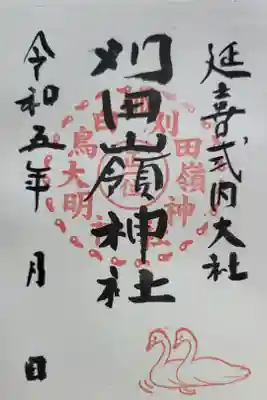 延喜式内大社
刈田嶺神社
令和五年 月 日
刈田嶺神社
白鳥大明神